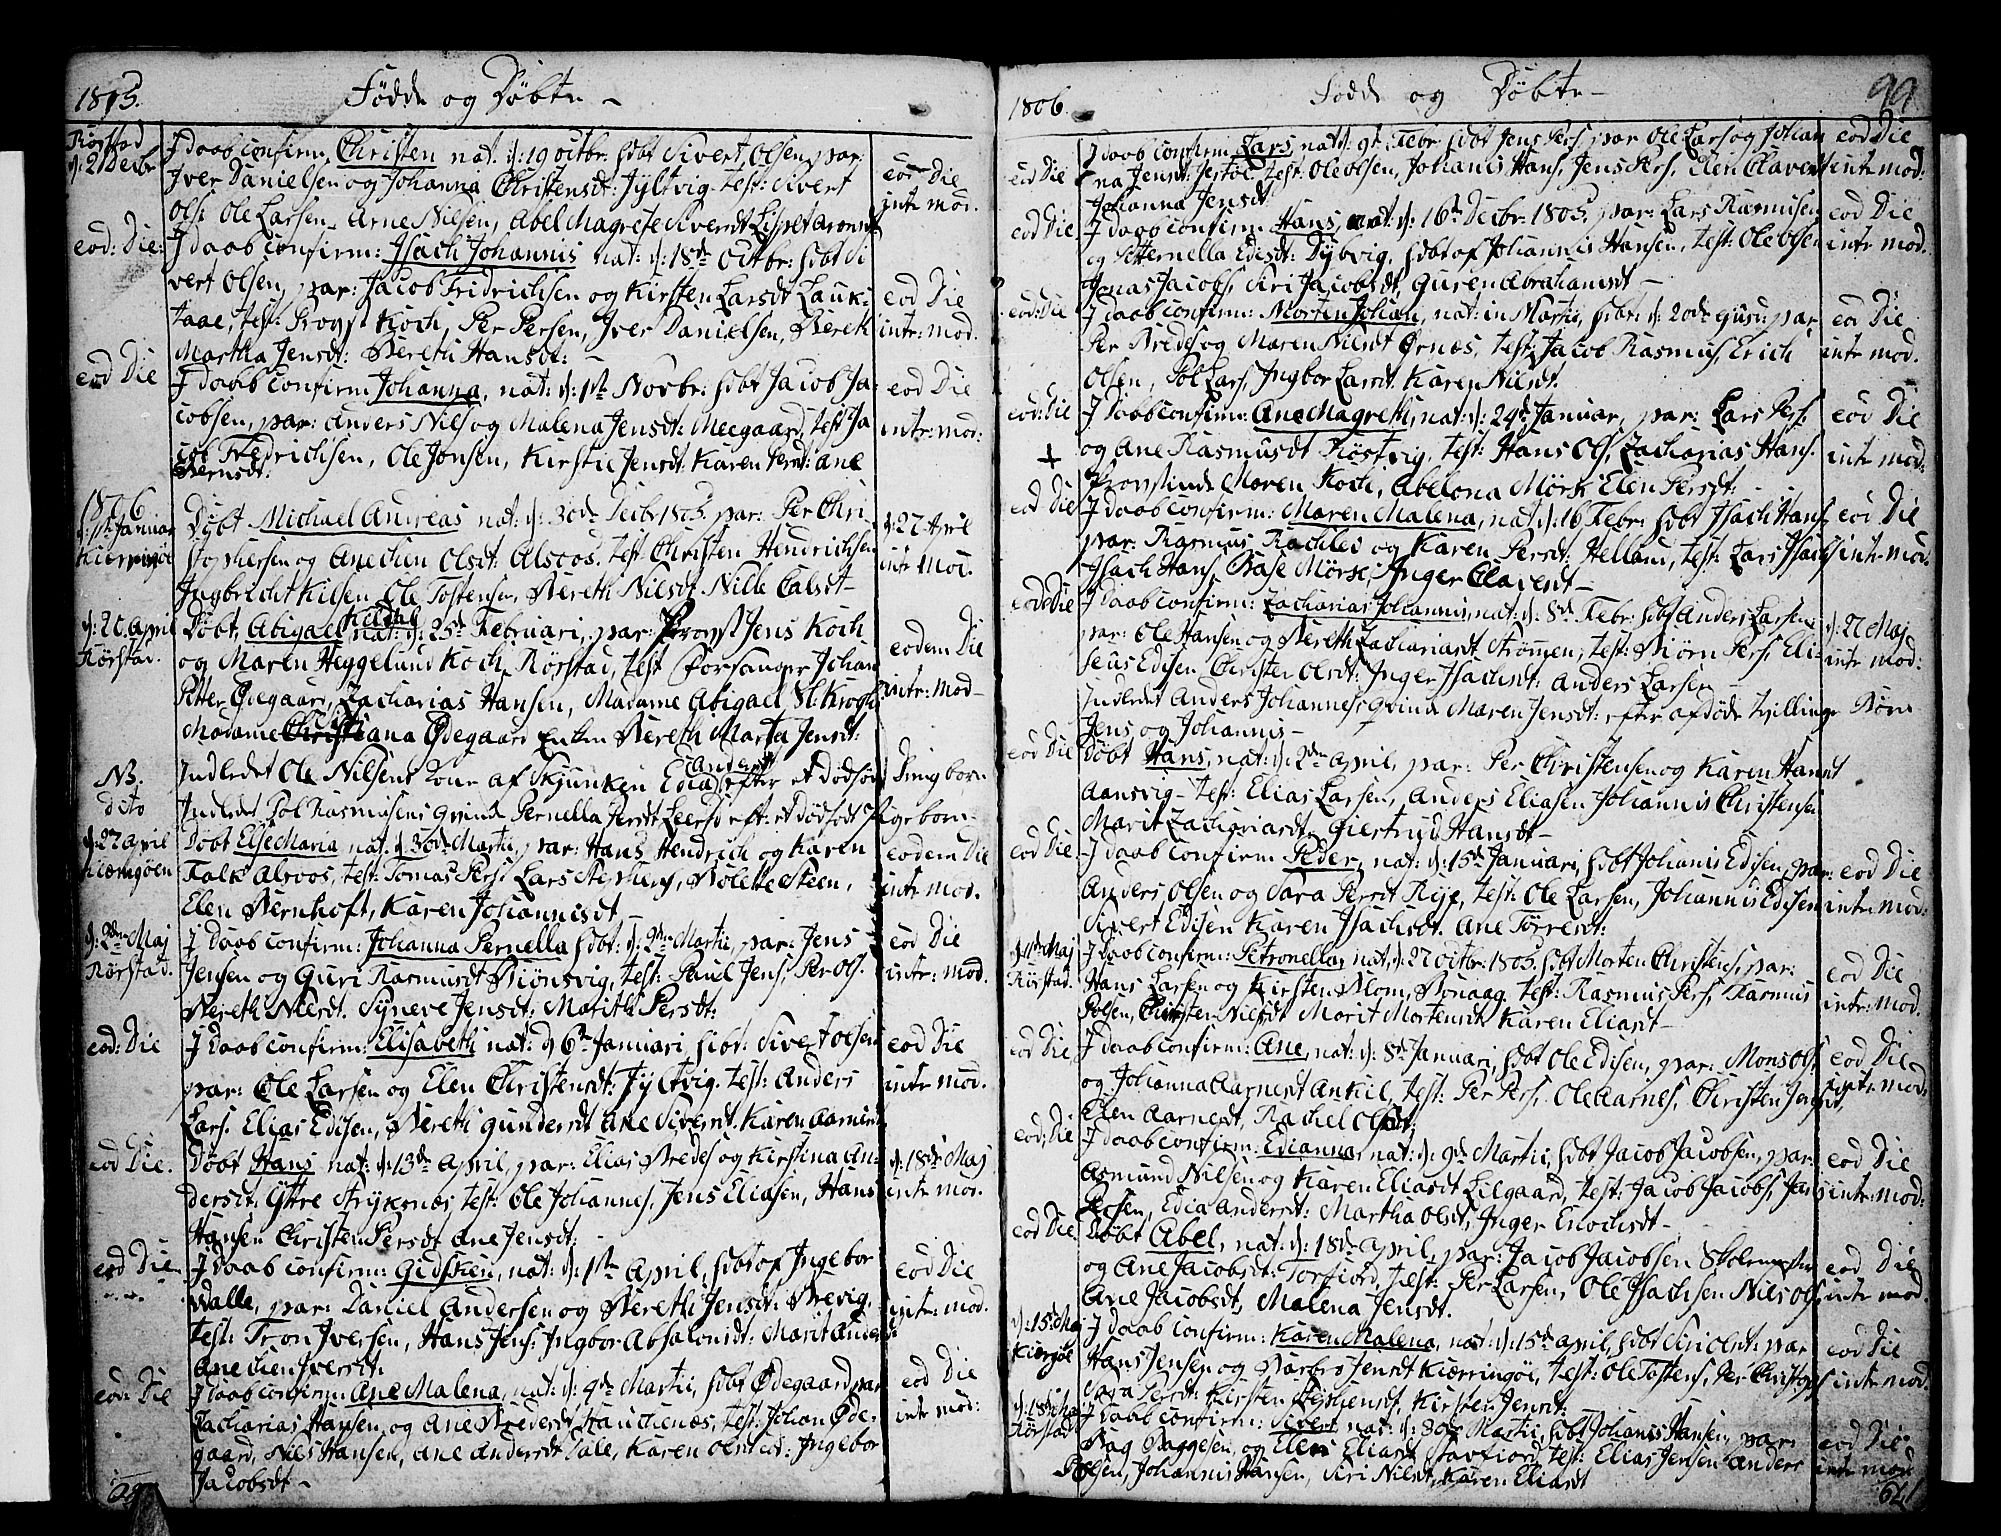 1805. Fødde og Døbte –
Rørstad
d: 21 Decbr
I daab confirm. Christen nat: d: 19 octbr: hdbt Sivert Olsen, par:
Iver Danielsen og Johanna Christensdt: Jyltvig. test: Sivert
Ols: Ole Larsen, Arne Nilsen, Abel Magrete Siversdt Lisbet Aronsdt
eod Die
intr mod.
eod: Die:
I daab confirm: Isach Johannis nat: d: 18de Octbr: hdbt Si
vert Olsen, par: Jacob Fridrichsen og Kirsten Larsdt Lauk:
taae, test: Provst Koch, Per Persen, Iver Danielsen, Bereth
Martha Jensdt: Bereth Hansdt: –
eod Die
intr: mod.
eod Die
I daab confirm: Johanna, nat: d: 1st Novbr: hdbt Jacob Ja:
cobsen, par: Anders Nils og Malena Jensdt: Meegaard, test Ja
cob Fredrichsen, Ole Jonsen, Kirstie Jensdt. Karen Persdt: Ane
Bernsdt:
eod Die
intr: mod:
1806
d: 1st Januar
Kierringøe
Døbt Michael Andreas nat: d: 30de Decbr 1805. par: Per Chri
stophersen og Anedien Olsdt. Alsoos. test: Christen Hendrichsen
Ingbrecht Nilsen Ole Tostensen, Bereth Nilsdt. Nille Calsdt –
d: 27 April
intr mod.
d: 20 April
Rørstad.
Døbt, Abigael Kildal nat: d: 25de Februari, par: Provst Jens Koch
og Maren Heggelund Koch, Rørstad, test Forsanger Johan
Petter Ødegaard, Zacharias Hansen, Madame Abigael Sl: Krogh
Madame Christiana Ødegaard Enken Bereth Marta Jensdt:
eodem Die
intr: mod –
NB.
Indledet Ole Nilsens Kone af Skjunken Edia Andersdt efter et dødfød
Drengbarn.
dito
Indledet Pol Rasmusens Qvinde Pernella Persdt Leersd eft: et dødfødt Pigebarn –
d: 27 April
Kiærringøen
Døbt Else Maria nat: d: 30de Martii, par: Hans Hendrich og Karen
Falk Alsoos, test: Tomas Pers: Lars Stephens, Bolette Steen,
Elen Bernhoft, Karen Johannisdt
eodem Die
intr mod.
d: 2den Maj
Rørstad.
I Daab confirm: Johanna Pernella hdbt: d: 2den Martii, par: Jens
Jensen og Guri Rasmusdt Biønsvig, test: Paul Jens: Per Ols:
Bereth Nilsdt. Synneve Jensdt: Marith Persdt:
eod Die
intr: mod.
eod: Die
I Daab confirm: Elisabeth nat: d 6te Januari, hdbt: Sivert olsen
par: Ole Larsen og Elen Christensdt: Jyltvig. test: Anders
Lars. Elias Edisen, Bereth Gundersdt Ane Siversdt. Karen Aarnesdt
eod Die
intr mod.
eod Die.
Døbt Hans nat: d: 13de April, par: Elias Bredes og Kirstina An:
dersdt: Yttre Strøksnæs, test: Ole Johannes, Jens Eliasen, Hans
Hansen Christen Persdt Ane Jensdt:
d: 18de Maj
intr mod.
eod Die
I Daab confirm: Gidsken, nat: d: 1ste April, hdbt of Ingebor
Walle, par: Daniel Andersen og Bereth Jensdt: Brevig,
test: Tron Iversen, Hans Jens: Ingbor Absalonsdt: Marit Anders
Anedien Iversdt
eod Die
intr: mod.
eod: Die
I daab confirm: Ane Malena, nat: d: 9de Martii, hdbt Ødegaard par
Zacharias Hansen og Ane Bredesdt Hauckenæs, test: Johan Øde:
gaard, Nils Hansen, Ane Andersdt Dale, Karen Olsdt: Ingebor
Jacobsdt –
eod Die
intr mod:
1806. Fødde og Døbte – 99
eod Die
I daab confirm: Lars nat: d: 9de Febr: hdbt Jens Pers, par Ole Lars og Johan
na Jensdt: Jerstøe. test: Ole Olsen, Johanis Hans, Jens Pers, Elen Clavesdt
Johanna Jensdt
eod Die
intr mod:
eod Die
I daab confirm: Hans, nat: d: 16de Decbr: 1805, par: Lars Rasmusen
og Petternella Edisdt: Dybvig, hdbt of Johannis Hansen, test: Ole Olsen
Jonas Jacobs, Siri Jacobsdt, Guren Abrahamsdt –
eod Die
intr mod.
eod: Die
I daab confirm: Morten Johan, nat: in Martii, hdbt: d: 20de ejusd: par
Per Bredes og Maren Nilsdt Ørnes, test: Jacob Rasmus, Erich
Olsen, Pol Lars, Ingbor Larsdt. Karen Nilsdt.
eod Die
intr mod.
eod: Die
+
I Daab confirm: Ane Magreth, nat: d: 24de Januar, par: Lars Pers:
og Ane Rasmusdt Røstvig, test: Hans Ols, Zacharias Hans.
Provstinde Maren Koch, Abelona Mörk Elen Persdt:
eod Die
intr mod:
eod Die
I Daab confirm: Maren Malena, nat: d: 16 Febr: hdbt Isach Hans,
par: Rasmus Rachlev og Karen Persdt: Helland, test: Lars Isachs
Isach Hans, Base Mörk, Inger Clavesdt –
eod Die
intr mod.
eod: Die
I Daab confirm: Zacharias Johannis, nat: d: 8de Febr: hdbt Anders Larsen
par: Ole Hansen og Bereth Zachariasdt Strømmen, test: Biørn Pers, Eli:
seus Edisen, Christen Olsdt: Inger Isachsdt: Anders Larsen
d: 27 Maj
intr mod:
Indledet Anders Johannes Qvinde Maren Jensdt: efter afdøde Tvillinge Børn
Jens og Johannis –
eod Die
Døbt Hans, nat: d: 2den April, par: Per Christensen og Karen Hansdt
Aansvig – test: Elias Larsen, Anders Eliasen Johannis Christensen
Marit Zachariasdt, Giertrud Hansdt –
eod Die
I daab confirm: Peder, nat: d: 15de Januari, hdbt Johanis Edisen, par:
Anders Olsen og Sara Persdt Riise, test: Ole Larsen, Johannis Edisen
Sivert Edisen Karen Isachsdt. Ane Torresdt:
eod Die
intr mod:
d: 11te Maj
Rørstad.
I Daab confirm: Petronella, nat: d: 27 octbr: 1805. hdbt Morten Christens, par:
Hans Larsen og Kirsten Blom, Bonaag. test: Rasmus Pers, Rasmus
Polsen, Christen Nilsdt Morit Mortensdt Karen Eliasdt –
eod Die
intr: mod.
eod Die
I Daab confirm: Ane, nat: d: 8de Januari, hdbt Ole Edisen, par: Mons Ols
og Johanna Aarnesdt Ankiil, test: Per Pers, Ole Aarnes, Christen Jensdt,
Elen Aarnesdt, Rachel Olsdt:
eod Die
intr mod.
eod: Die
I Daab confirm: Edianna, nat: d: 9de Martii, hdbt Jacob Jacobsen, par:
Asmund Nilsen og Karen Eliasdt Lilgaard, test: Jacob Jacobs, Jens
Persen, Edia Andersdt: Martha Olsdt, Inger Enochsdt –
eod Die
intr: mod:
eod Die
Døbt Abel, nat: d: 18de April, par: Jacob Jacobsen Skolemester
og Ane Jacobsdt: Torfiord, test: Per Larsen, Ole Isachsen Nils Ols
Ane Jacobsdt, Malena Jensdt.
eod Die
intr mod.
d: 15: Maj
Kierringøe
I Daab confirm: Karen Malena, nat: d: 15de April, hdbt Siri Olsdt: par
Hans Jensen og Barbro Jensdt Kierringøi, test: Ole Tostens, Per Christophs
Sara Persdt: Kirsten Stephensdt, Kirsten Jensdt:
eod Die
intr mod.
d: 18de Maj
Rørstad
I Daab confirm: Sivert nat: d: 30de Martii, hdbt Johanis Hansen, par:
Bag Baggesen, og Elen Eliasdt Torfiord, test: Elias Jensen Anders
Polsen, Johannis Hansen, Siri Nilsdt, Karen Eliasdt
eod Die
intr mod